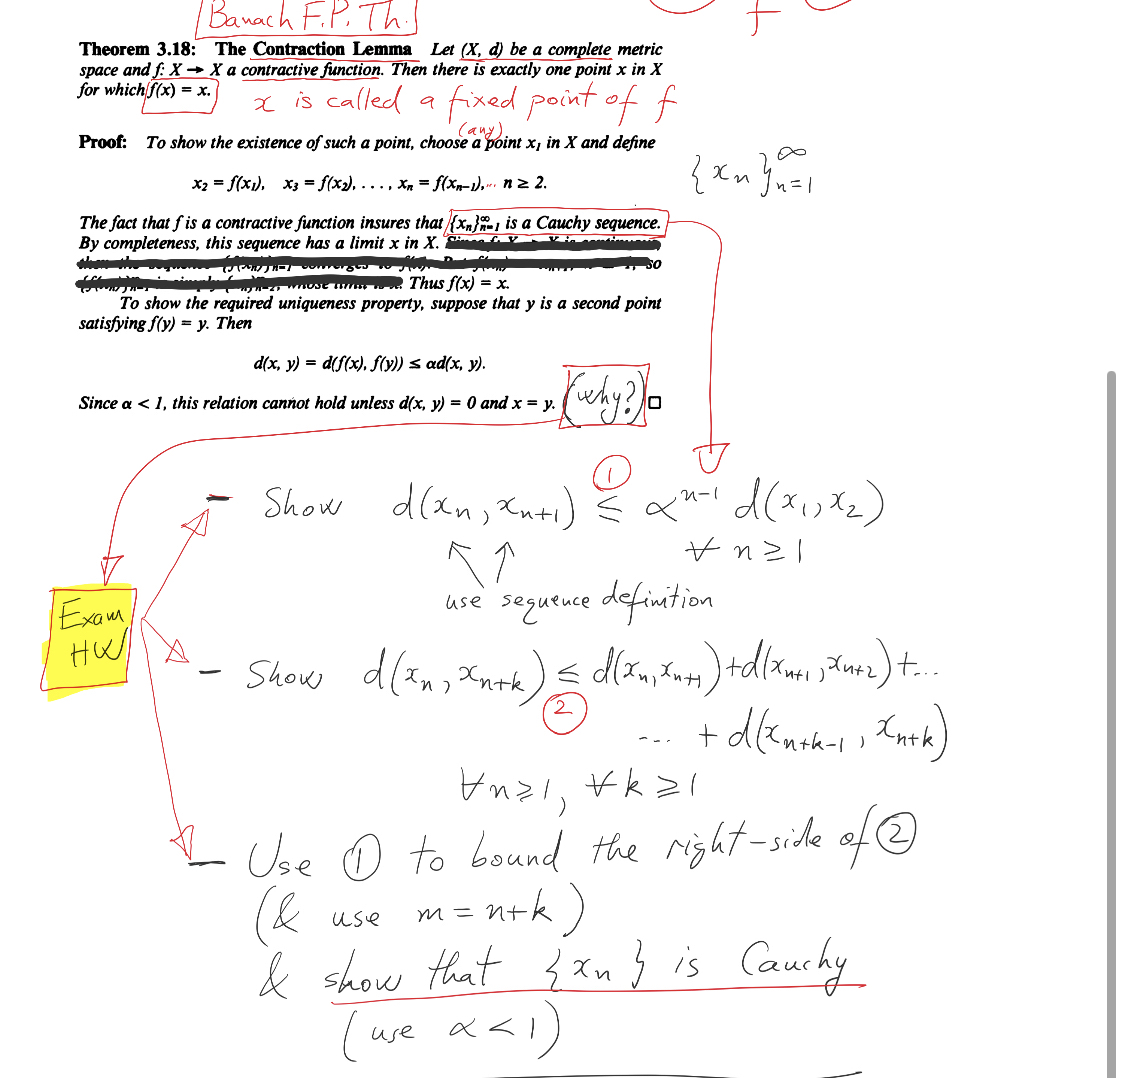 Banach F.P. Th.
f
Theorem 3.18: The Contraction Lemma Let (X, d) be a complete metric
space and f: X → X a contractive function. Then there is exactly one point x in X
for which f(x) = x.
x is called a fixed point of f
(any)
Proof: To show the existence of such a point, choose a point x₁ in X and define
{xₙ}∞ₙ₌₁
x₂ = f(x₁), x₃ = f(x₂), . . . , xₙ = f(xₙ₋₁),... n ≥ 2.
The fact that f is a contractive function insures that {xₙ}∞ₙ₌₁ is a Cauchy sequence.
By completeness, this sequence has a limit x in X.
so
Thus f(x) = x.
To show the required uniqueness property, suppose that y is a second point
satisfying f(y) = y. Then
d(x, y) = d(f(x), f(y)) ≤ αd(x, y).
Since α < 1, this relation cannot hold unless d(x, y) = 0 and x = y. (why?) □
①
- Show d(xₙ, xₙ₊₁) ≤ αⁿ⁻¹ d(x₁, x₂)
∀ n ≥ 1
use sequence definition
Exam
HW
- Show d(xₙ, xₙ₊ₖ) ≤ d(xₙ, xₙ₊₁) + d(xₙ₊₁, xₙ₊₂) + ...
②
... + d(xₙ₊ₖ₋₁, xₙ₊ₖ)
∀ n ≥ 1, ∀ k ≥ 1
- Use ① to bound the right-side of ②
(& use m = n+k)
& show that {xₙ} is Cauchy
(use α < 1)